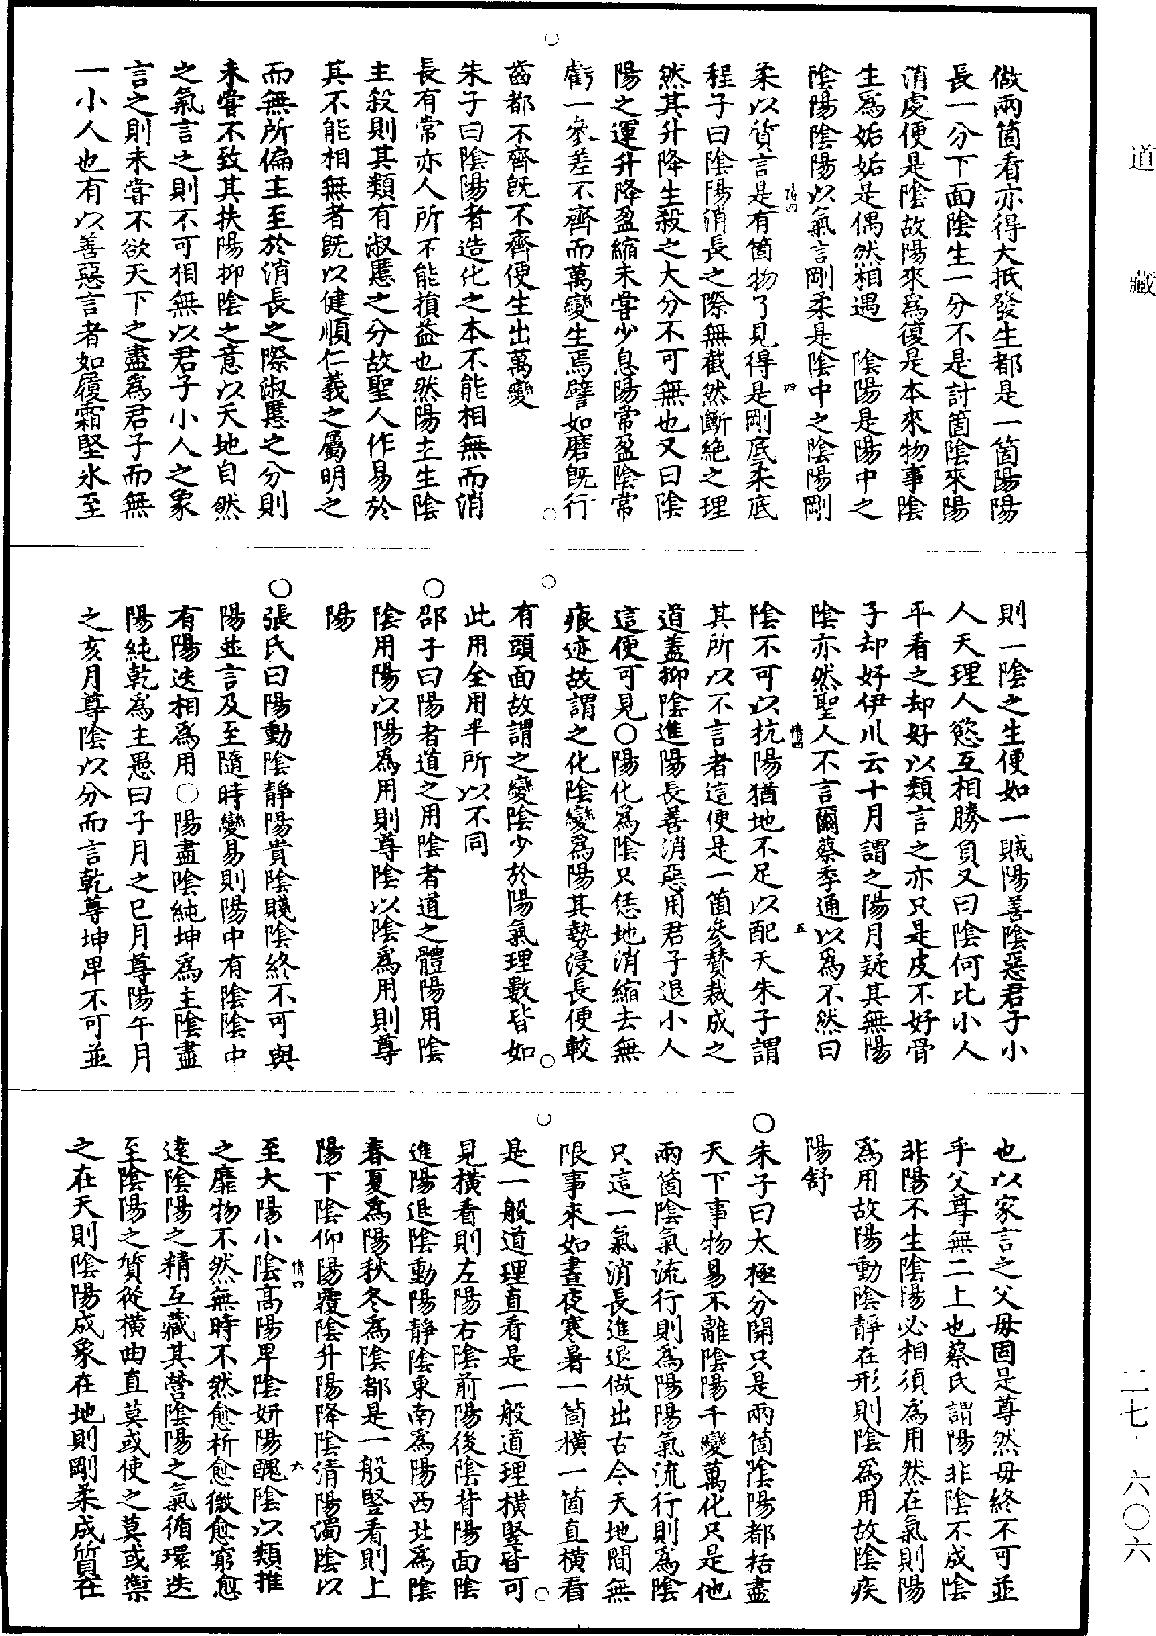 道藏
二七·六〇六
做兩箇看亦得大抵發生都是一箇陽陽
長一分下面陰生一分不是討箇陰來陽
消處便是陰故陽來爲復是本來物事陰
生爲姤姤是偶然相遇　陰陽是陽中之
陰陽陰陽以氣言剛柔是陰中之陰陽剛
柔以質言是有箇物了見得是剛底柔底
程子曰陰陽消長之際無截然斷絶之理
然其升降生殺之大分不可無也又曰陰
陽之運升降盈縮未嘗少息陽常盈陰常
虧一參差不齊而萬變生焉譬如磨旣行
齒都不齊旣不齊便生出萬變
朱子曰陰陽者造化之本不能相無而消
長有常亦人所不能損益也然陽主生陰
主殺則其類有淑慝之分故聖人作易於
其不能相無者旣以健順仁義之屬明之
而無所偏主至於消長之際淑慝之分則
未嘗不致其扶陽抑陰之意以天地自然
之氣言之則不可相無以君子小人之象
言之則未嘗不欲天下之盡爲君子而無
一小人也有以善惡言者如履霜堅氷至
則一陰之生便如一賊陽善陰惡君子小
人天理人慾互相勝負又曰陰何比小人
平看之却好以類言之亦只是皮不好骨
子却好伊川云十月謂之陽月疑其無陽
陰亦然聖人不言爾蔡季通以爲不然曰
陰不可以抗陽猶地不足以配天朱子謂
其所以不言者這便是一箇參贊裁成之
道蓋抑陰進陽長善消惡用君子退小人
這便可見〇陽化爲陰只恁地消縮去無
痕迹故謂之化陰變爲陽其勢浸長便較
有頭面故謂之變陰少於陽氣理數皆如
此用全用半所以不同
〇邵子曰陽者道之用陰者道之體陽用陰
陰用陽以陽爲用則尊陰以陰爲用則尊
陽
〇張氏曰陽動陰靜陽貴陰賤陰終不可與
陽並言及至隨時變易則陽中有陰陰中
有陽迭相爲用〇陽盡陰純坤爲主陰盡
陽純乾爲主愚曰子月之巳月尊陽午月
之亥月尊陰以分而言乾尊坤卑不可並
也以家言之父母固是尊然母終不可並
乎父尊無二上也蔡氏謂陽非陰不成陰
非陽不生陰陽必相須爲用然在氣則陽
爲用故陽動陰靜在形則陰爲用故陰疾
陽舒
〇朱子曰太極分開只是兩箇陰陽都括盡
天下事物易不離陰陽千變萬化只是他
兩箇陰氣流行則爲陽陽氣流行則爲陰
只這一氣消長進退做出古今天地間無
限事來如晝夜寒暑一箇橫一箇直橫看
是一般道理直看是一般道理橫豎皆可
見橫看則左陽右陰前陽後陰背陽面陰
進陽退陰動陽靜陰東南爲陽西北爲陰
春夏爲陽秋冬爲陰都是一般豎看則上
陽下陰仰陽覆陰升陽降陰清陽濁陰以
至大陽小陰高陽卑陰姸陽醜陰以類推
之靡物不然無時不然愈析愈微愈窮愈
達陰陽之精互藏其營陰陽之氣循環迭
至陰陽之質從橫曲直莫或使之莫或禦
之在天則陰陽成象在地則剛柔成質在